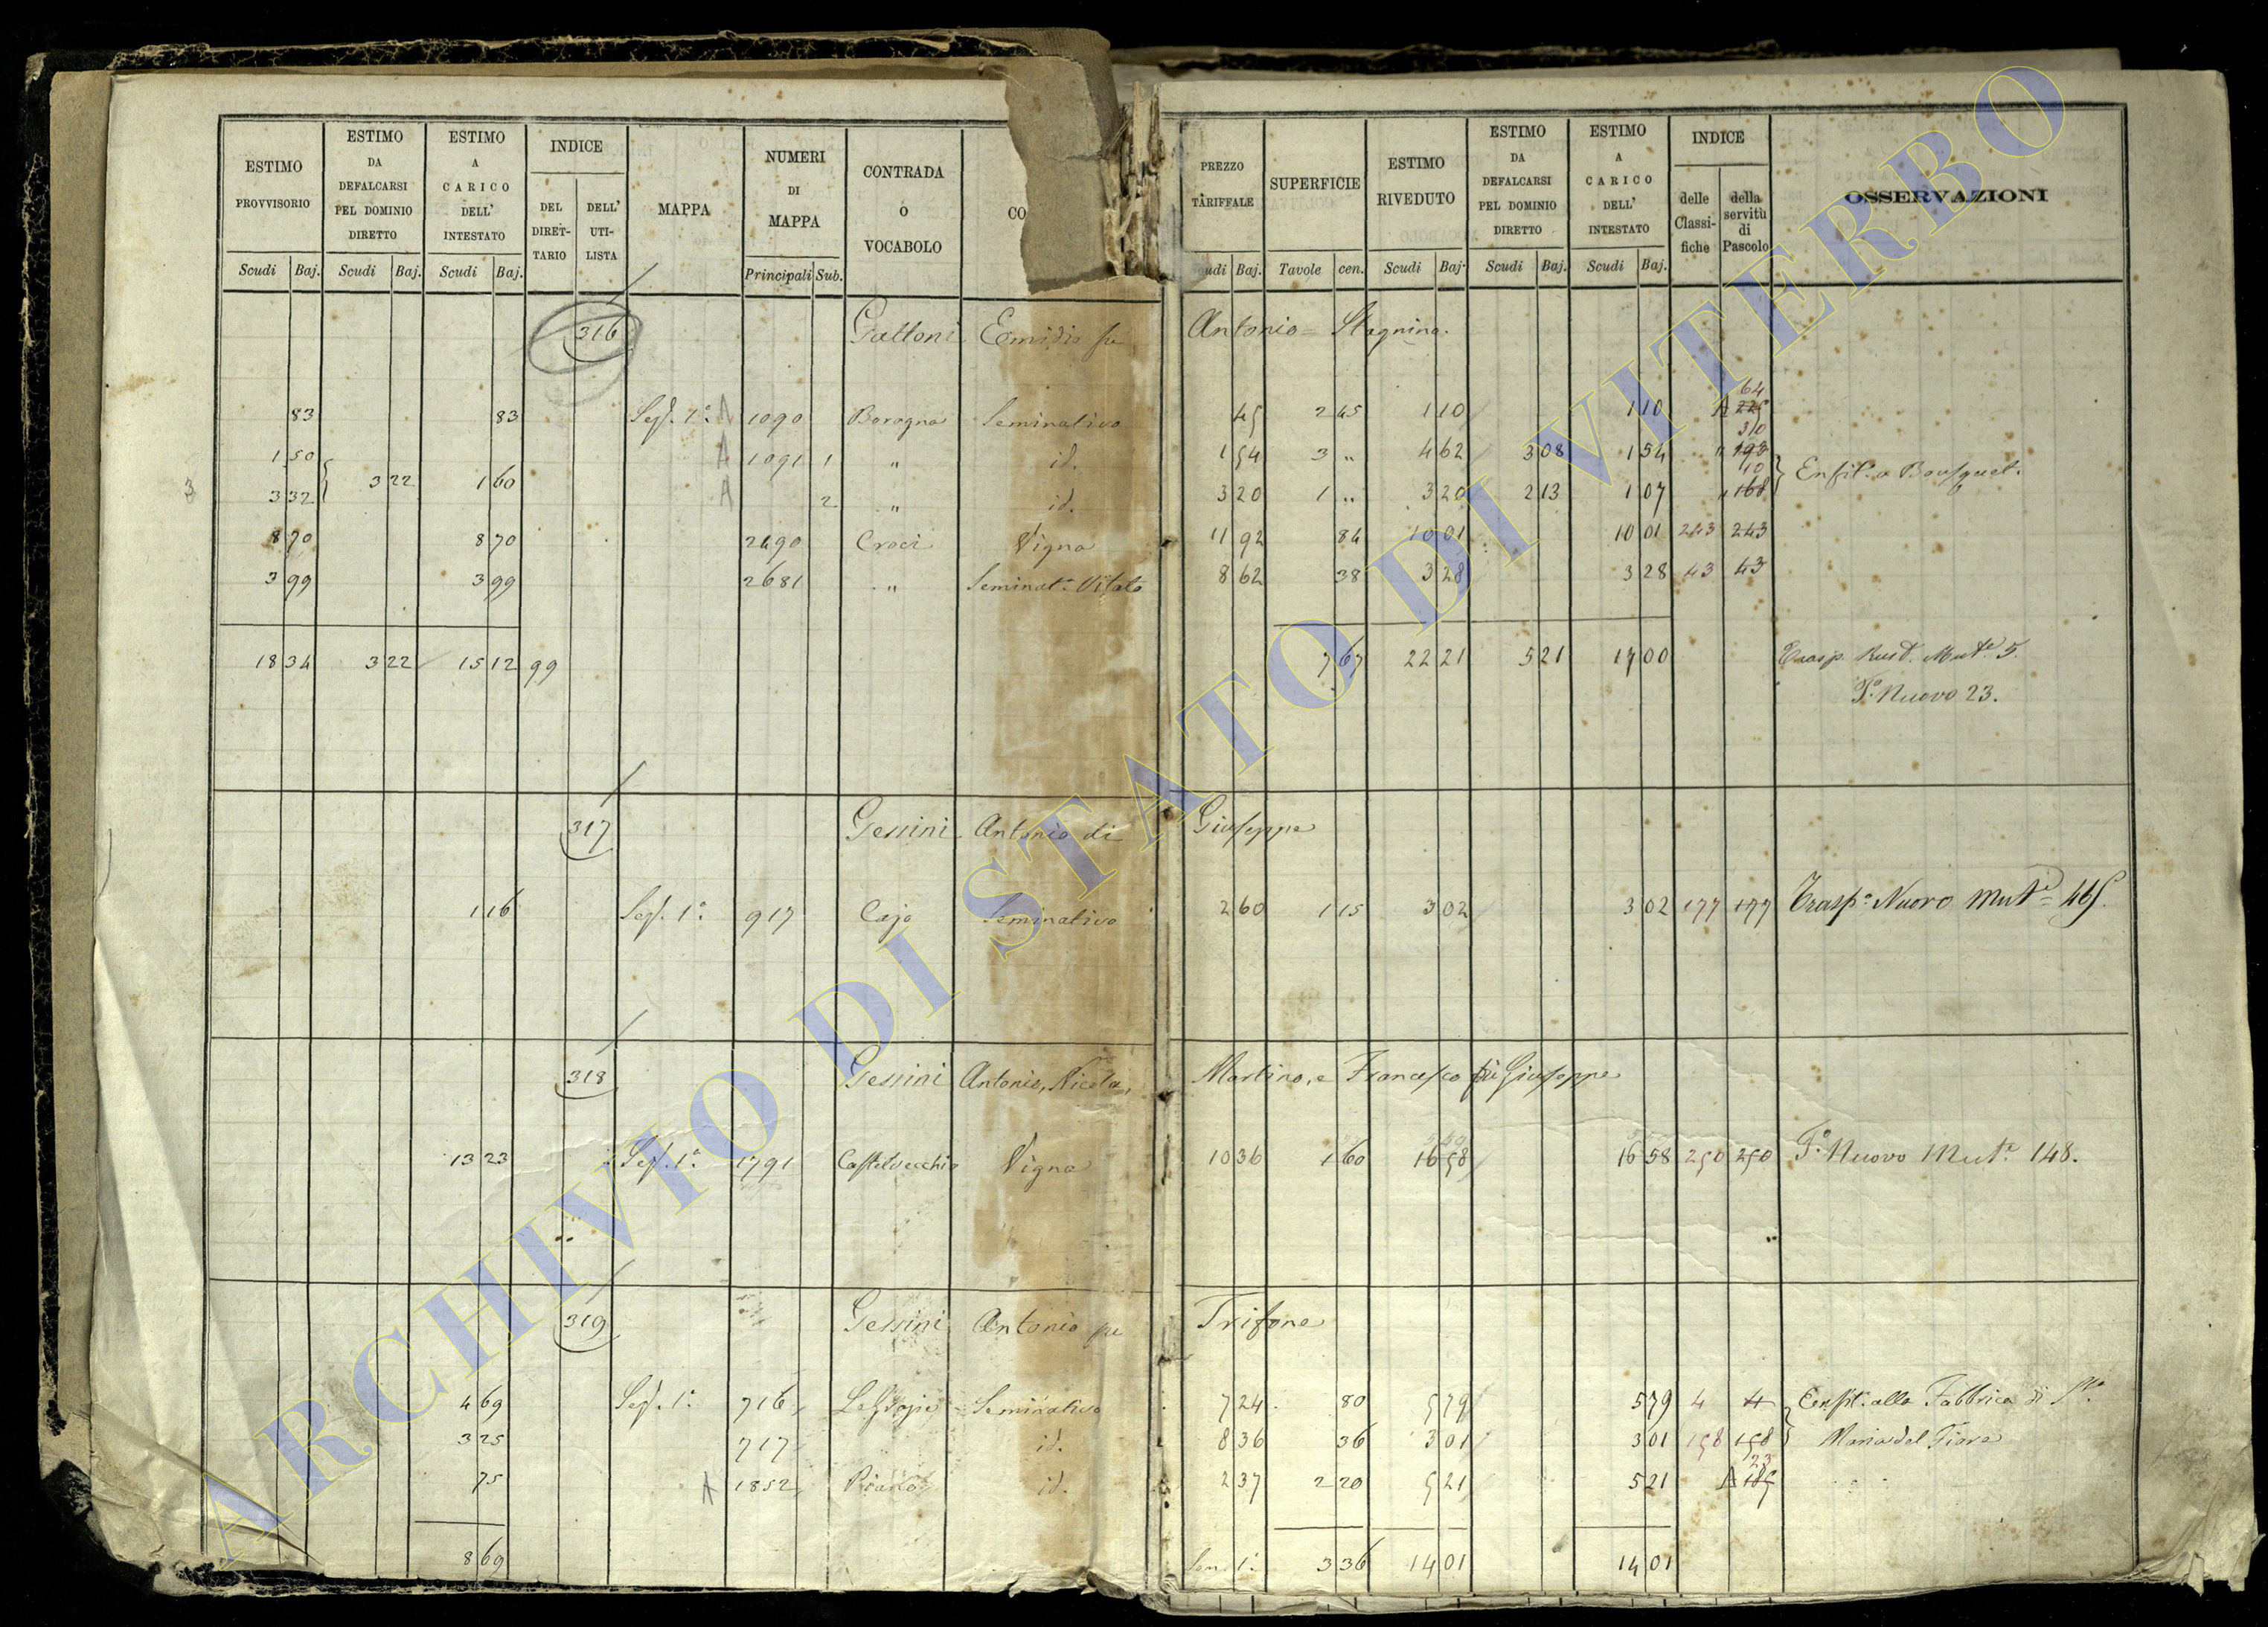 ESTIMO PROVVISORIO
ESTIMO DA DEFALCARSI PEL DOMINIO DIRETTO
ESTIMO A CARICO DELL' INTESTATO
INDICE
DEL DIRETTARIO
DELL' UTILISTA
MAPPA
NUMERI DI MAPPA
CONTRADA O VOCABOLO
CO
PREZZO TARIFFALE
SUPERFICIE
ESTIMO RIVEDUTO
ESTIMO DA DEFALCARSI PEL DOMINIO DIRETTO
ESTIMO A CARICO DELL' INTESTATO
INDICE
delle Classifiche
della servitù di Pascolo
OSSERVAZIONI
Scudi Baj. Scudi Baj. Scudi Baj. Principali Sub. udi Baj. Tavole cen. Scudi Baj. Scudi Baj. Scudi Baj.
316 Gattoni Emidio Antonio = Stagnino.
83 83 A 1090 Seminativo 45 2 45 1 10 1 10 A 225 64
1 50 A 1091 1 " id. 1 54 3 " 4 62 3 08 1 54 " 198 310
3 3 32 3 22 1 60 A 2 " id. 3 20 1 " 3 20 2 13 1 07 " 168 10
8 70 8 70 2490 Croci Vigna 11 92 84 10 01 10 01 243 243
3 99 3 99 2681 " Seminat. Vitato 8 62 38 3 28 3 28 43 43
18 34 3 22 15 12 99 7 67 22 21 5 21 17 00 Trasp. Rust. Mut.e 5.
T.o Nuovo 23.
317 Gessini Antonio di Giuseppe
1 16 917 Seminativo 2 60 1 15 3 02 3 02 177 177 Trasp.o Nuovo Mut.e
318 Gessini Antonio, Nicola, Martino, e Francesco Giuseppe
13 23 1791 Castelvecchio Vigna 10 36 1 60 16 58 16 58 250 250 T.o Nuovo Mut.e 148.
319 Gessini Antonio Trifone
4 69 716 Seminativo 7 24 80 5 79 5 79 4 4 alla Fabbrica di S.ta
3 25 717 id. 8 36 36 3 01 3 01 158 158 Maria del Fiore
75 A 1852 id. 2 37 2 20 5 21 5 21 A 185 23
8 69 3 36 14 01 14 01
ARCHIVIO DI STATO DI VITERBO